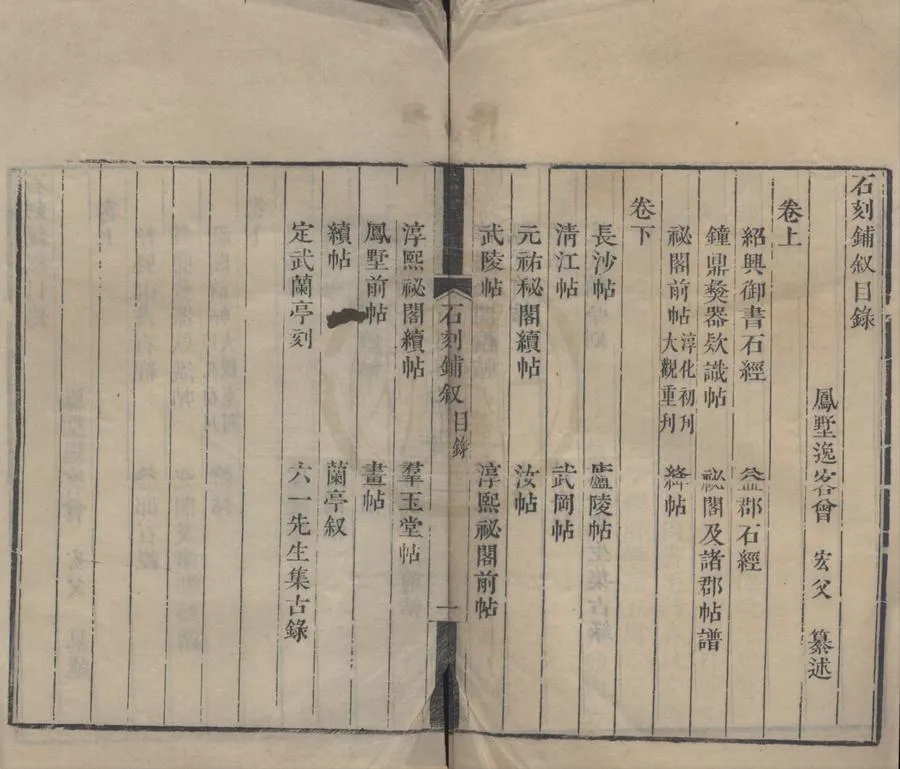 石刻鋪叙目錄
鳳墅逸客曾 宏父 纂述
卷上
紹興御書石經 益郡石經
鐘鼎彝器欵識帖 祕閣及諸郡帖譜
祕閣前帖 淳化初刋 大觀重刋 絳帖
卷下
長沙帖 廬陵帖
清江帖 武岡帖
元祐秘閣續帖 汝帖
武陵帖 淳熙祕閣前帖
石刻鋪叙 目錄 一
淳熙祕閣續帖 羣玉堂帖
鳳墅前帖 畫帖
續帖 蘭亭叙
定武蘭亭刻 六一先生集古錄